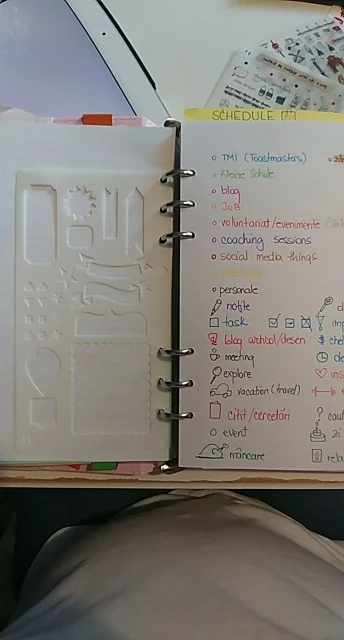 SCHEDULE
TMI (Toastmasters)
Kleine Schule
blog
JoB
voluntariat/evenimente /
coaching sessions
social media things
personale
notițe
task
blog articol/desen
meeting
explore
vacation (travel)
citit/cercetări
event
mâncare